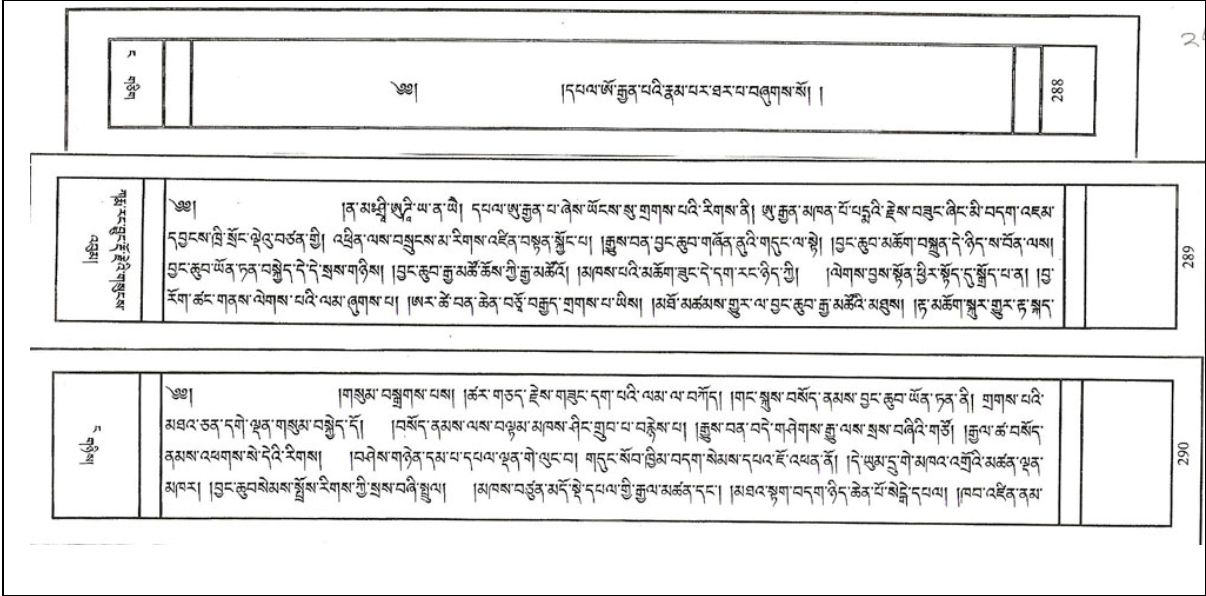 ༄༅། །དཔལ་ཨོ་རྒྱན་པའི་རྣམ་པར་ཐར་པ་བཞུགས་སོ། །
ད གཅིག
288
༄༅། །ན་མཿཤྲཱི་ཨུཌྜི་ཡ་ན་ཡེ། དཔལ་ཨུ་རྒྱན་པ་ཞེས་ཡོངས་སུ་གྲགས་པའི་རིགས་ནི། ཨུ་རྒྱན་མཁན་པོ་པདྨའི་རྗེས་བཟུང་ཞིང་མི་བདག་འཇམ་
དབྱངས་ཁྲི་སྲོང་ལྡེའུ་བཙན་གྱི། འཕྲིན་ལས་བསྲུངས་མ་རིགས་འཛིན་བསྟན་སྐྱོང་པ། །རྒྱུས་བན་བྱང་ཆུབ་གཞོན་ནུའི་གདུང་ལ་སྟེ། །བྱང་ཆུབ་མཆོག་བསྐྲུན་དེ་ཉིད་ས་བོན་ལས།
བྱང་ཆུབ་ཡོན་ཏན་བསྐྱེད་དེ་དེ་སྲས་གཉིས། །བྱང་ཆུབ་རྒྱ་མཚོ་ཆོས་ཀྱི་རྒྱ་མཚོའོ། །མཁས་པའི་མཆོག་ཟུང་དེ་དག་རང་ཉིད་ཀྱི། །ལེགས་བྱས་སྟོན་ཕྱིར་སྟོད་དུ་སྒྲོད་པ་ན། །བྱ་
རོག་ཚང་གནས་ལེགས་པའི་ལམ་ཞུགས་པ། །ཨར་ཚེ་བན་ཆེན་བཅོ་བརྒྱད་གྲགས་པ་ཡིས། །མཐོ་མཚམས་གྱུར་ལ་བྱང་ཆུབ་རྒྱ་མཚོའི་མཐུས། །རྟ་མཆོག་སྐུར་གྱུར་རྟ་སྐད་
289
༄༅། །གསུམ་བསྒྲགས་པས། །ཚར་གཅད་རྗེས་གཟུང་དག་པའི་ལམ་ལ་བཀོད། །གང་སྐྲུས་བསོད་ནམས་བྱང་ཆུབ་ཡོན་ཏན་ནི། གྲགས་པའི་
མཐའ་ཅན་དགེ་ལྡན་གསུམ་བསྐྱེད་དོ། །བསོད་ནམས་ལས་བལྟམ་མཁས་ཤིང་གྲུབ་པ་བརྙེས་པ། །རྒྱུས་བན་བདེ་གཤེགས་རྒྱུ་ལས་སྲས་བཞིའི་གཙོ། །རྒྱལ་ཚ་བསོད་
ནམས་འཕགས་སེ་དེའི་རིགས། །བཤེས་གཉེན་དམ་པ་དཔལ་ལྡན་གེ་ལུང་བ། གདུང་སོབ་ཁྱིམ་བདག་སེམས་དཔའ་ཇོ་འཕན་ནོ། །དེ་ཡུམ་དྲུ་གེ་མཁའ་འགྲོའི་མཚན་ལྡན་
མཁར། །བྱང་ཆུབསེམས་སྤྲོས་རིགས་ཀྱི་སྲས་བཞི་སྤྲུལ། །མཁས་བཙུན་མདོ་སྡེ་དཔལ་གྱི་རྒྱལ་མཚན་དང་། །མཐའ་སྟག་བདག་ཉིད་ཆེན་པོ་སེངྒེ་དཔལ། །ཁབ་འཛིན་ནམ་
ད གཉིས།
290